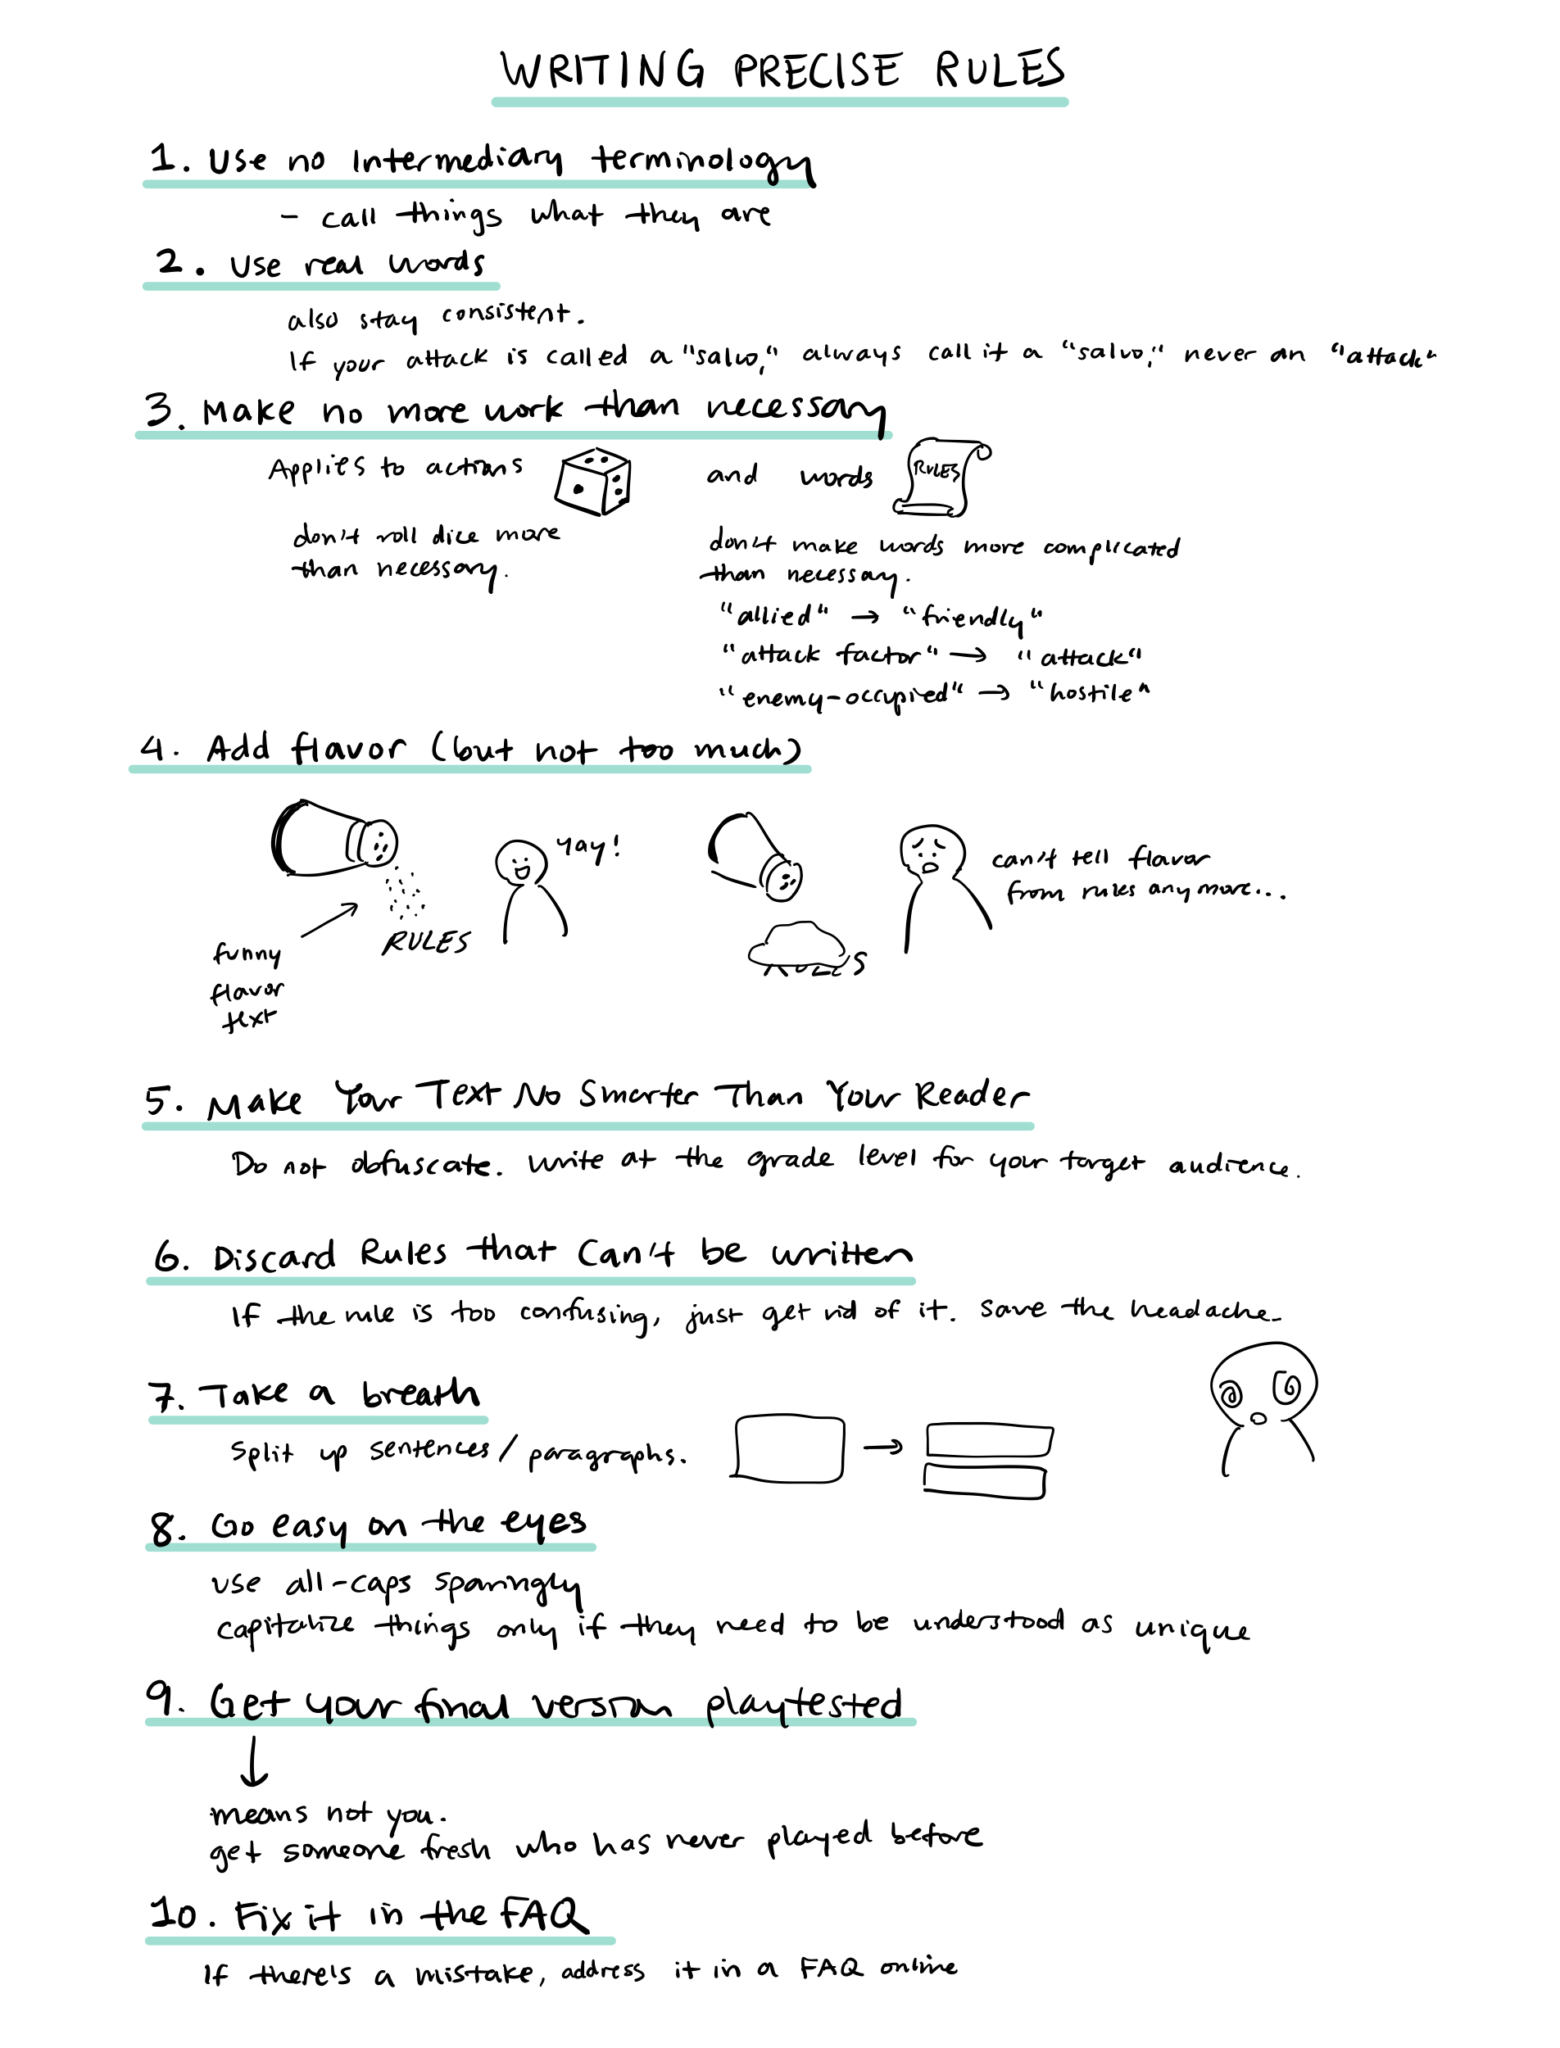 WRITING PRECISE RULES
1. Use no Intermediary terminology
- call things what they are
2. Use real words
also stay consistent.
If your attack is called a "salvo," always call it a "salvo," never an "attack"
3. Make no more work than necessary
Applies to actions
and words
RULES
don't roll dice more
than necessary.
don't make words more complicated
than necessary.
"allied" → "friendly"
"attack factor" → "attack"
"enemy-occupied" → "hostile"
4. Add flavor (but not too much)
Yay!
can't tell flavor
from rules anymore...
funny
flavor
text
RULES
RULES
5. Make Your Text No Smarter Than Your Reader
Do not obfuscate. Write at the grade level for your target audience.
6. Discard Rules that Can't be written
If the rule is too confusing, just get rid of it. Save the headache.
7. Take a breath
Split up sentences/paragraphs.
8. Go easy on the eyes
use all-caps sparingly
capitalize things only if they need to be understood as unique
9. Get your final version playtested
means not you.
get someone fresh who has never played before
10. Fix it in the FAQ
If there's a mistake, address it in a FAQ online